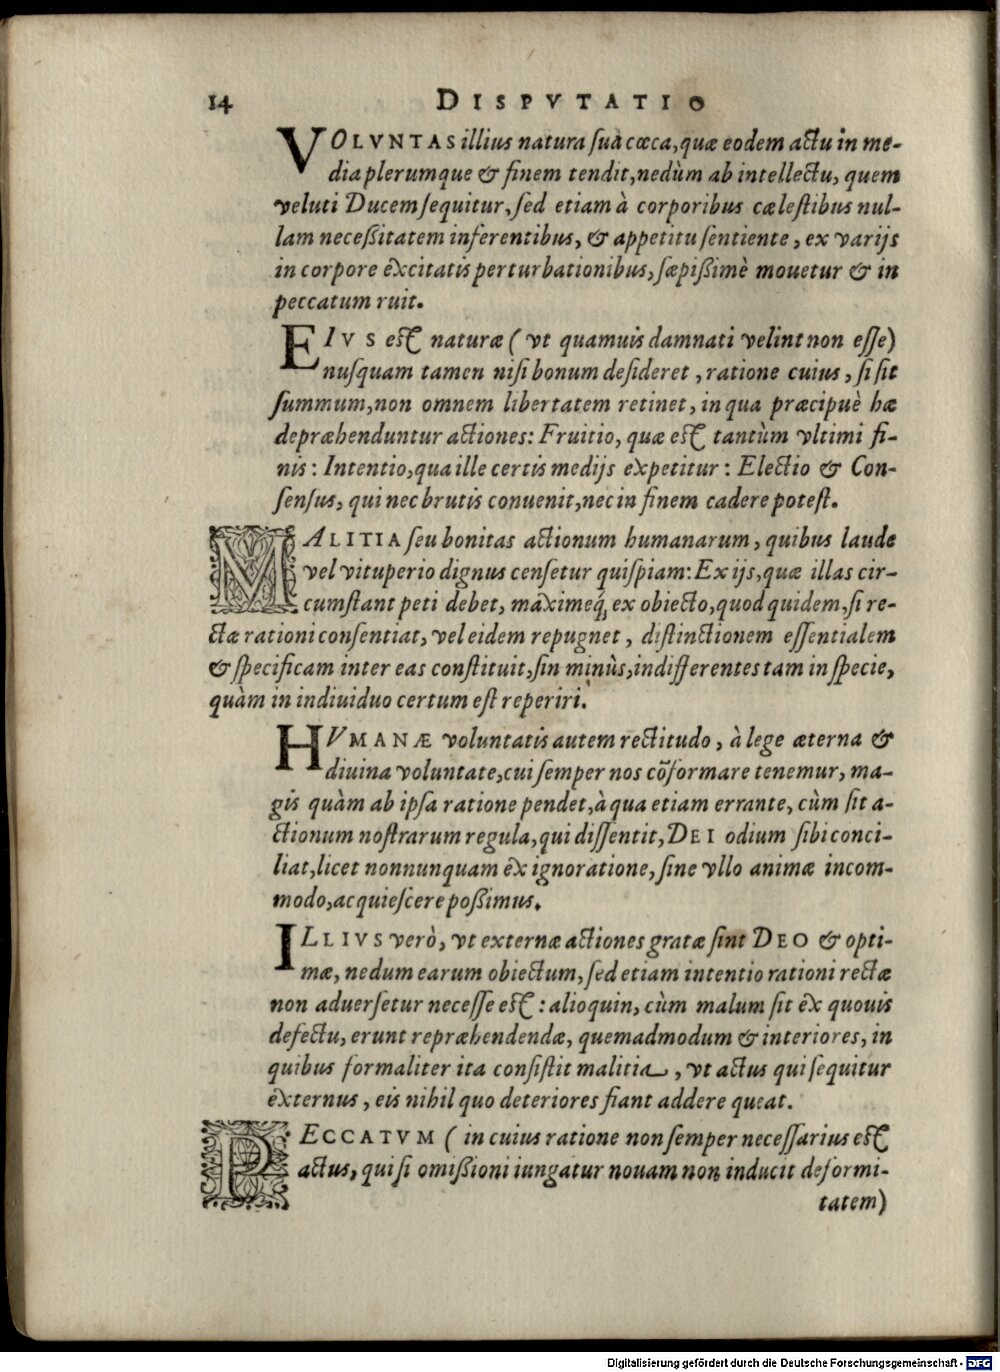 14 DISPVTATIO
VOLVNTAS illius natura suà cæca, quæ eodem actu in me-
dia plerumque & finem tendit, nedùm ab intellectu, quem
veluti Ducem sequitur, sed etiam à corporibus cælestibus nul-
lam necessitatem inferentibus, & appetitu sentiente, ex varijs
in corpore excitatis perturbationibus, sæpissimè mouetur & in
peccatum ruit.
EIVS est naturæ (vt quamuis damnati velint non esse)
nusquam tamen nisi bonum desideret, ratione cuius, si sit
summum, non omnem libertatem retinet, in qua præcipuè hæ
depræhenduntur actiones: Fruitio, quæ est tantùm vltimi fi-
nis: Intentio, qua ille certis medijs expetitur: Electio & Con-
sensus, qui nec brutis conuenit, nec in finem cadere potest.
MALITIA seu bonitas actionum humanarum, quibus laude
vel vituperio dignus censetur quispiam: Ex ijs, quæ illas cir-
cumstant peti debet, maximeq́; ex obiecto, quod quidem, si re-
ctæ rationi consentiat, vel eidem repugnet, distinctionem essentialem
& specificam inter eas constituit, sin minùs, indifferentes tam in specie,
quàm in indiuiduo certum est reperiri.
HVMANÆ voluntatis autem rectitudo, à lege æterna &
diuina voluntate, cui semper nos cõformare tenemur, ma-
gis quàm ab ipsa ratione pendet, à qua etiam errante, cùm sit a-
ctionum nostrarum regula, qui dissentit, DEI odium sibi conci-
liat, licet nonnunquam ex ignoratione, sine vllo animæ incom-
modo, acquiescere possimus.
ILLIVS verò, vt externæ actiones gratæ sint DEO & opti-
mæ, nedum earum obiectum, sed etiam intentio rationi rectæ
non aduersetur necesse est: alioquin, cùm malum sit ex quouis
defectu, erunt repræhendendæ, quemadmodum & interiores, in
quibus formaliter ita consistit malitia, vt actus qui sequitur
externus, eis nihil quo deteriores fiant addere queat.
PECCATVM (in cuius ratione non semper necessarius est
actus, qui si omissioni iungatur nouam non inducit deformi-
tatem)
Digitalisierung gefördert durch die Deutsche Forschungsgemeinschaft - DFG